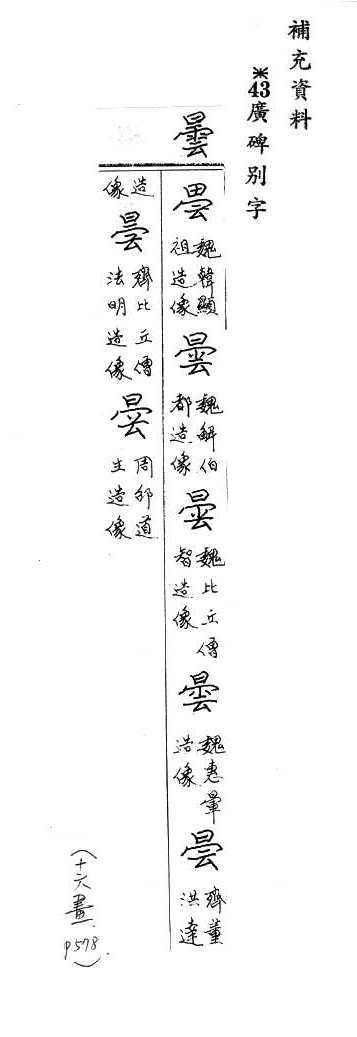 補充資料
※43廣碑别字
曇
曇 魏韓顯祖造像 曇 魏解伯都造像 曇 魏比丘僧智造像 曇 魏惠暈造像 曇 齊董洪達
造像 曇 齊比丘僧法明造像 曇 周邻道生造像
(十六畫. P578.)